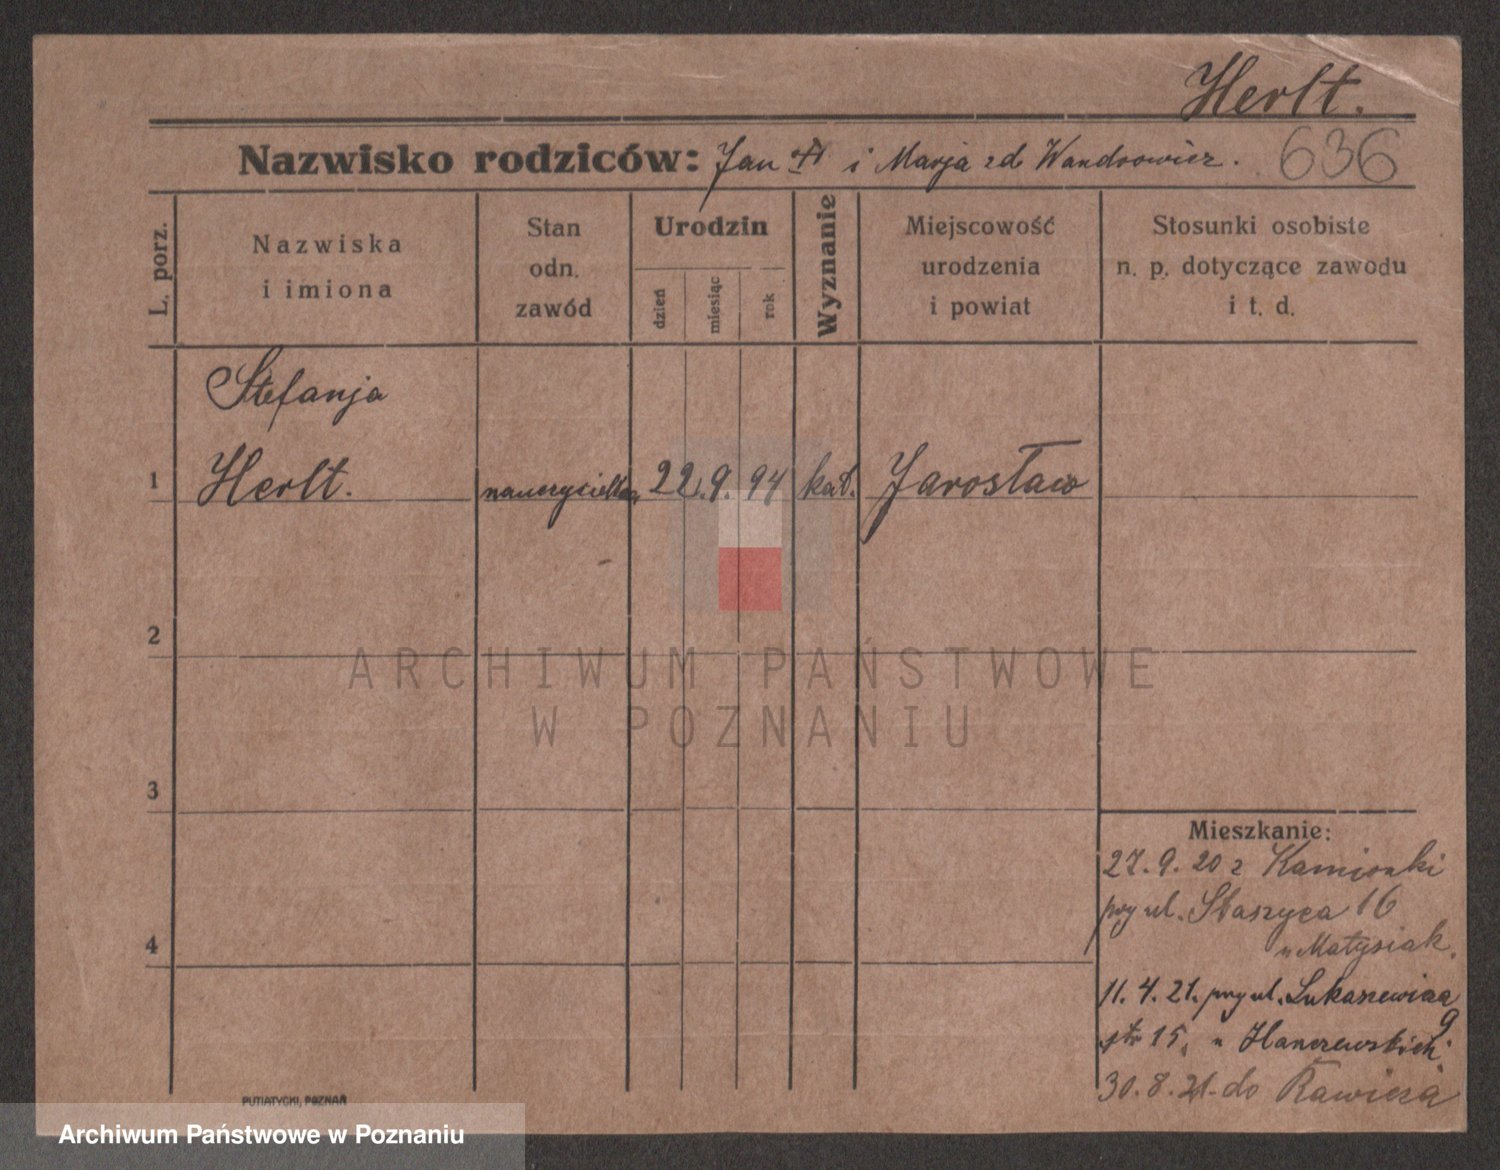 Herlt.
Nazwisko rodziców: Jan i Marja zd Wandrowicz. 636
L. porz.
Nazwiska
i imiona
Stan
odn.
zawód
Urodzin
dzień
miesiąc
rok
Wyznanie
Miejscowość
urodzenia
i powiat
Stosunki osobiste
n. p. dotyczące zawodu
i t. d.
Stefanja
1 Herlt. nauczycielka 22. 9. 94 kat. Jarosław
2
ARCHIWUM PAŃSTWOWE
W POZNANIU
3
Mieszkanie:
27. 9. 20 z Kamionki
przy ul. Staszyca 16
u Matysiak.
4
11. 4. 21. przy ul. Łukaszewicza 9
str 15, u Hanczewskich
30. 8. 21. do Rawicza
PUTIATYCKI, POZNAŃ
Archiwum Państwowe w Poznaniu